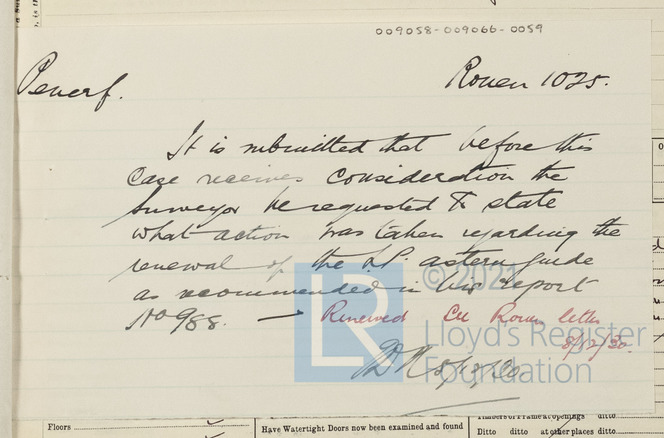 009058-009066-0059
Penerf. Rouen 1025.
It is submitted that before this
case receives consideration the
Surveyor be requested to state
what action was taken regarding the
renewal of the L.P. astern guide
as recommended in his report
No 988. — Renewed See Rouen letter
8/12/20.
5/12/20
LR
© 2021
Lloyd's Register
Foundation
Floors
Have Watertight Doors now been examined and found
Timbers of Frame at openings ditto
Ditto ditto at other places ditto